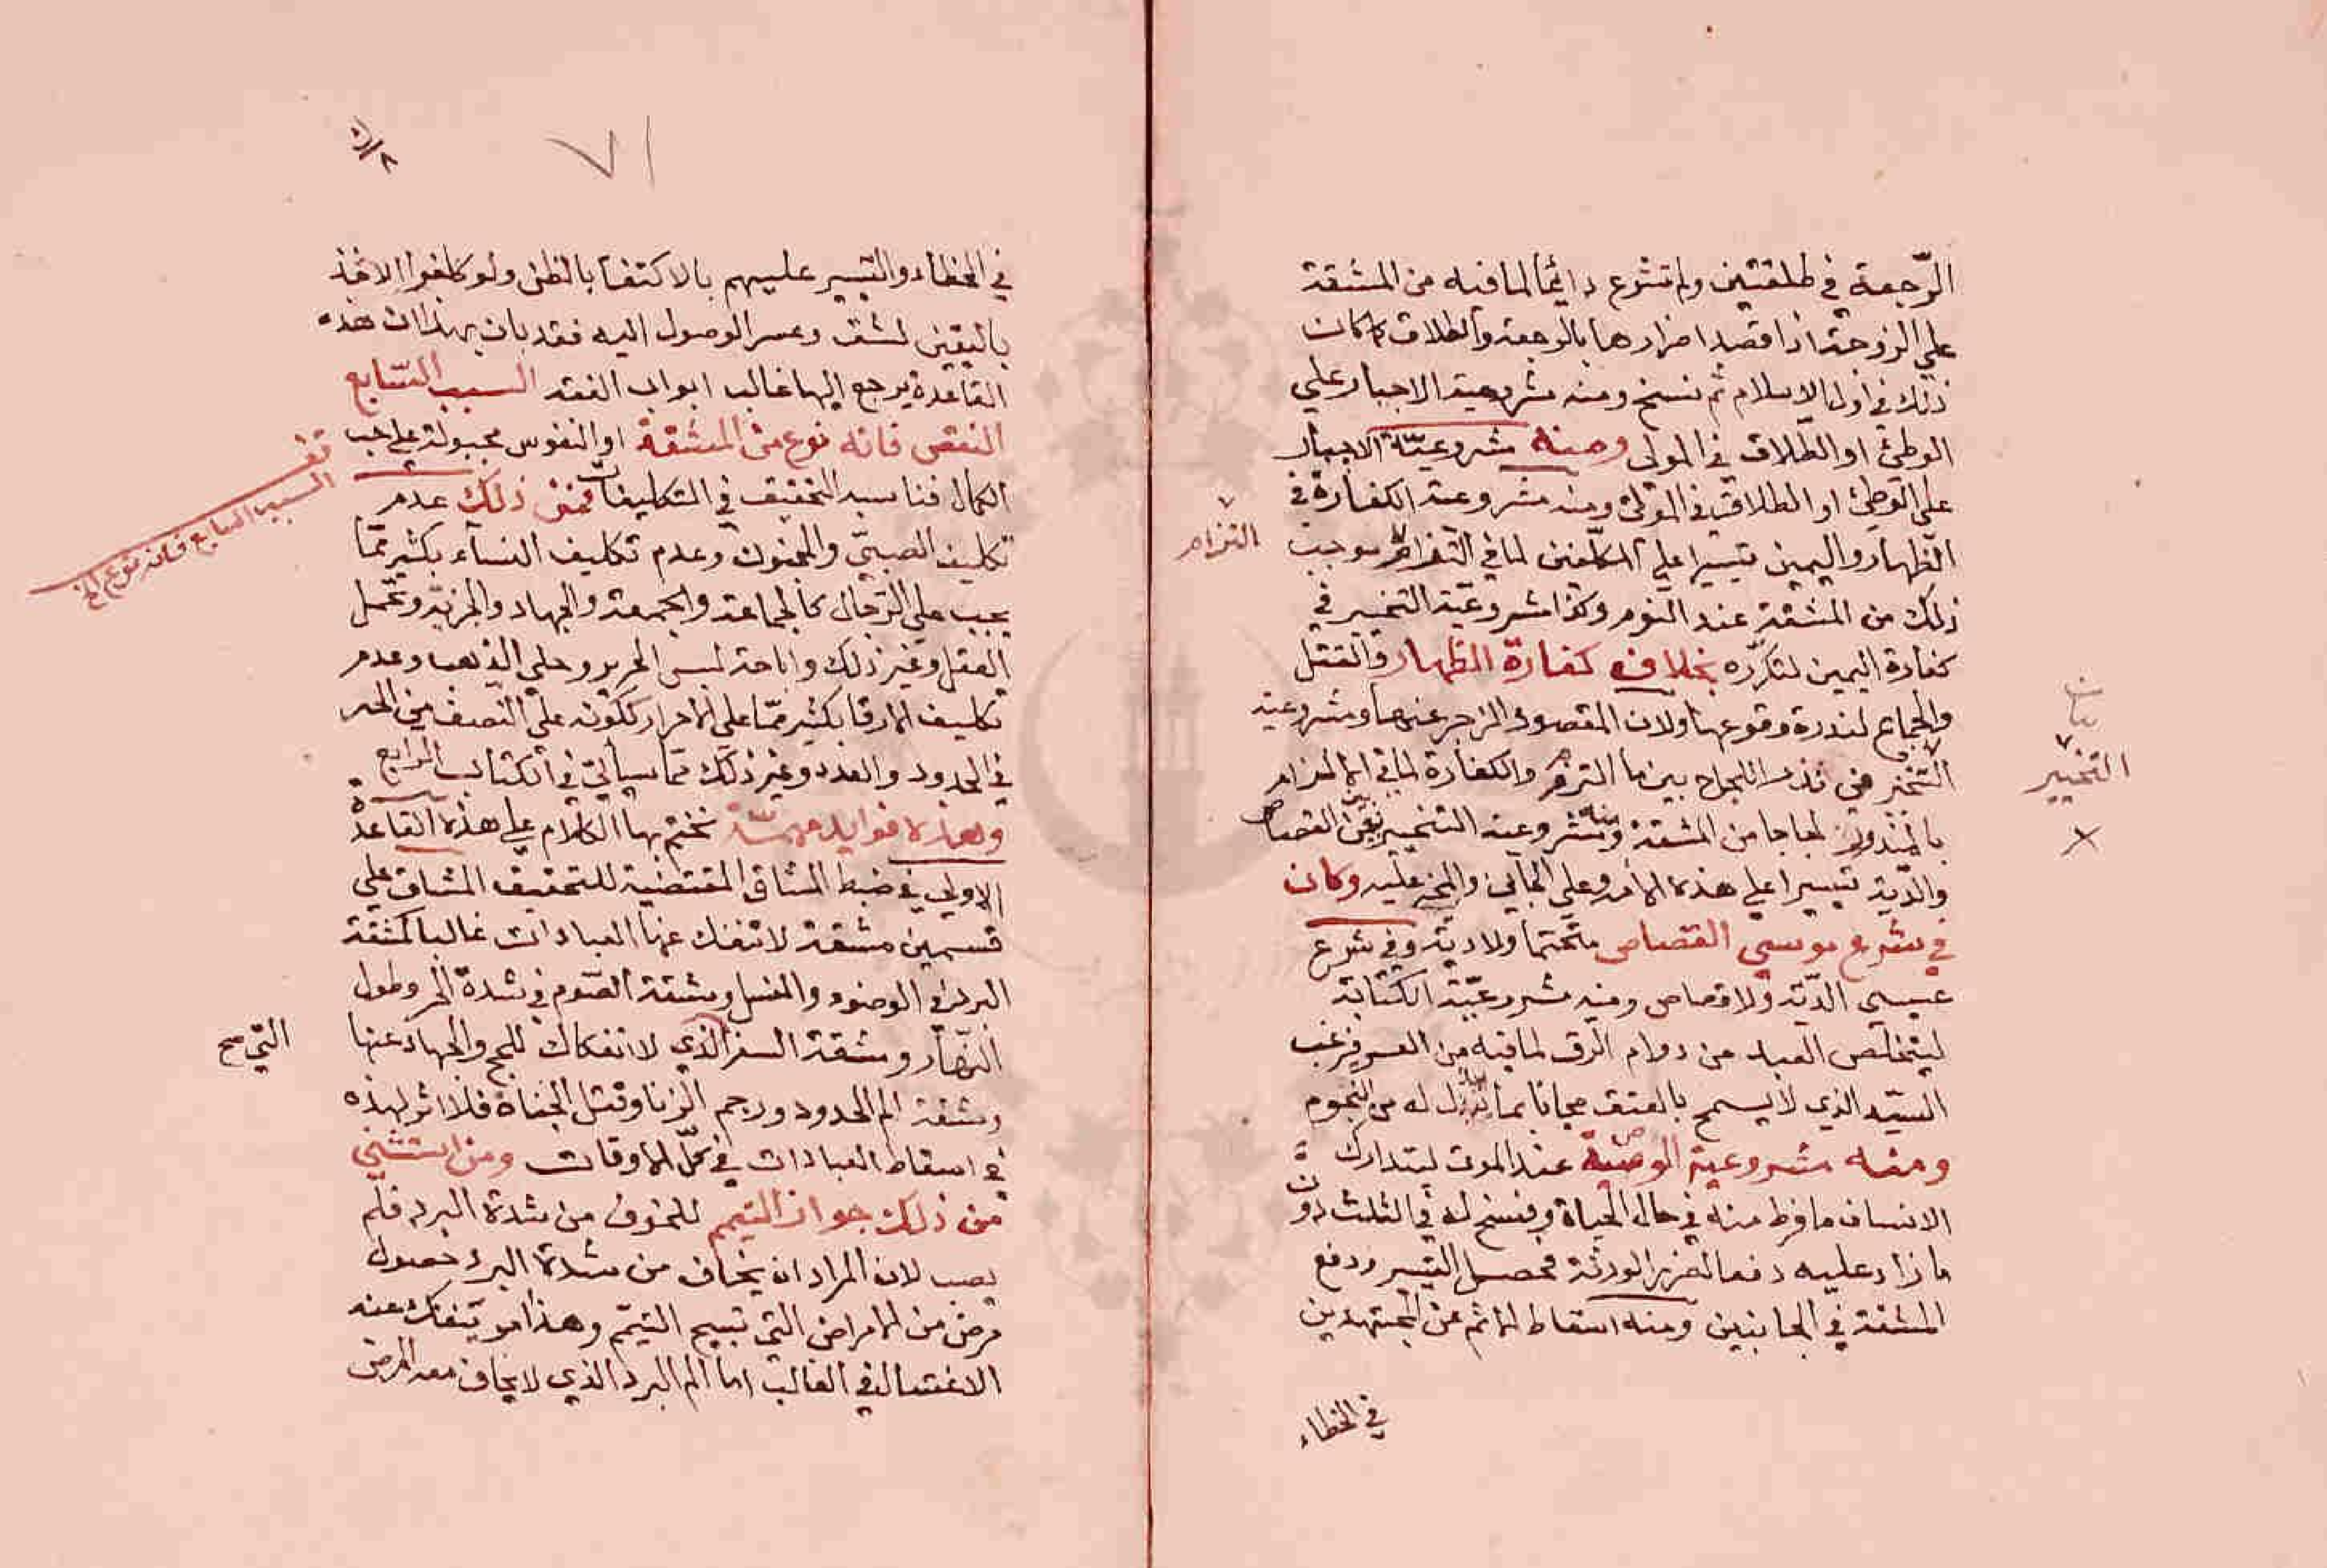 الرّجعة في طلقتين ولم تشرع دائما لما فيه من المشقة
على الزوجة اذا قصد اضرارها بالرجعة والطلاق كما كان
ذلك في اول الاسلام ثم نسخ ومنه مشروعية الاجبار علي
الوطئ او الطلاق في المولى ومنه مشروعيّة الاجبار
على الوطئ او الطلاق في المولى ومنه مشروعية الكفارة في
الظهار واليمين تيسيرا على المكلّفين لما في التزام موجب
التزام
ذلك من المشقة عند النوم وكذا مشروعيّة التخيير في
كفارة اليمين لتكرّره بخلاف كفارة الظهار والقتل
والجماع لندرة وقوعها ولان المقصود الزجر عنها ومشروعية
بيان
التخيير
التخير في نذر اللجاج بين ما التزم والكفارة لما في الالزام
بالمنذور لجاجا من المشقة ومنه مشروعية التخيير بين القصاص
والدّية تيسيرا على هذه الامة وعلى الجاني والمجني عليه وكان
في شرع موسى القصاص متحتما ولا دية وفي شرع
عيسى الدّية ولا قصاص ومنه مشروعيّة الكتابة
ليتخلّص العبد من دوام الرّق لما فيه من العسر فيرغب
السيّد الذي لا يسمح بالعتق مجانا بما يبذل له من النجوم
ومنه مشروعية الوصيّة عند الموت ليتدارك
الانسان ما فرط منه في حال الحياة وفسح له في الثلث دون
ما زاد عليه دفعا لضرر الورثة فحصل التيسير ودفع
المشقة في الجانبين ومنه اسقاط الاثم عن المجتهدين
في الخطاء
٧١
في الخطاء والتيسير عليهم بالاكتفا بالظن ولو كلفوا الاخذ
باليقين لشق وعسر الوصول اليه فقد بان بهذا ان هذه
القاعدة يرجع اليها غالب ابواب الفقه السبب السّابع
النقص فانه نوع من المشقة او النفوس مجبولة على حب
السبب السابع فانه نوع الخ
الكمال فناسبه التخفيف في التكليفات فمن ذلك عدم
تكليف الصبيّ والمجنون وعدم تكليف النسآء بكثير ممّا
يجب على الرّجال كالجماعة والجمعة والجهاد والجزية وتحمل
العقل وغير ذلك واباحة لبس الحرير وحلي الذهب وعدم
تكليف الارقا بكثير ممّا على الاحرار ككونه على النّصف من الحر
في الحدود والعدد وغير ذلك مما سيأتي في الكتاب الرابع
وهذه فوايد مهمّة نختم بها الكلام على هذه القاعدة
الاولي في ضبط المشاق المقتضية للتخفيف المشاق علي
قسمين مشقة لا تنفك عنها العبادات غالبا كمشقة
البرد في الوضوء والغسل ومشقة الصّوم في شدة الحر وطول
النّهار ومشقة السفر الذي لا انفكاك للحج والجهاد عنها
ومشقة الم الحدود ورجم الزنا وقتل الجناة فلا اثر لهذه
في اسقاط العبادات في كلّ الاوقات ومن استثنى
من ذلك جواز التيمم للخوف من شدة البرد فلم
يصب لان المراد ان يخاف من شدة البرد حصول
مرض من الامراض التي تبيح التيمّم وهذا امر يتفكّ عنه
الاغتسال في الغالب اما الم البرد الذي لا يخاف معه المرض